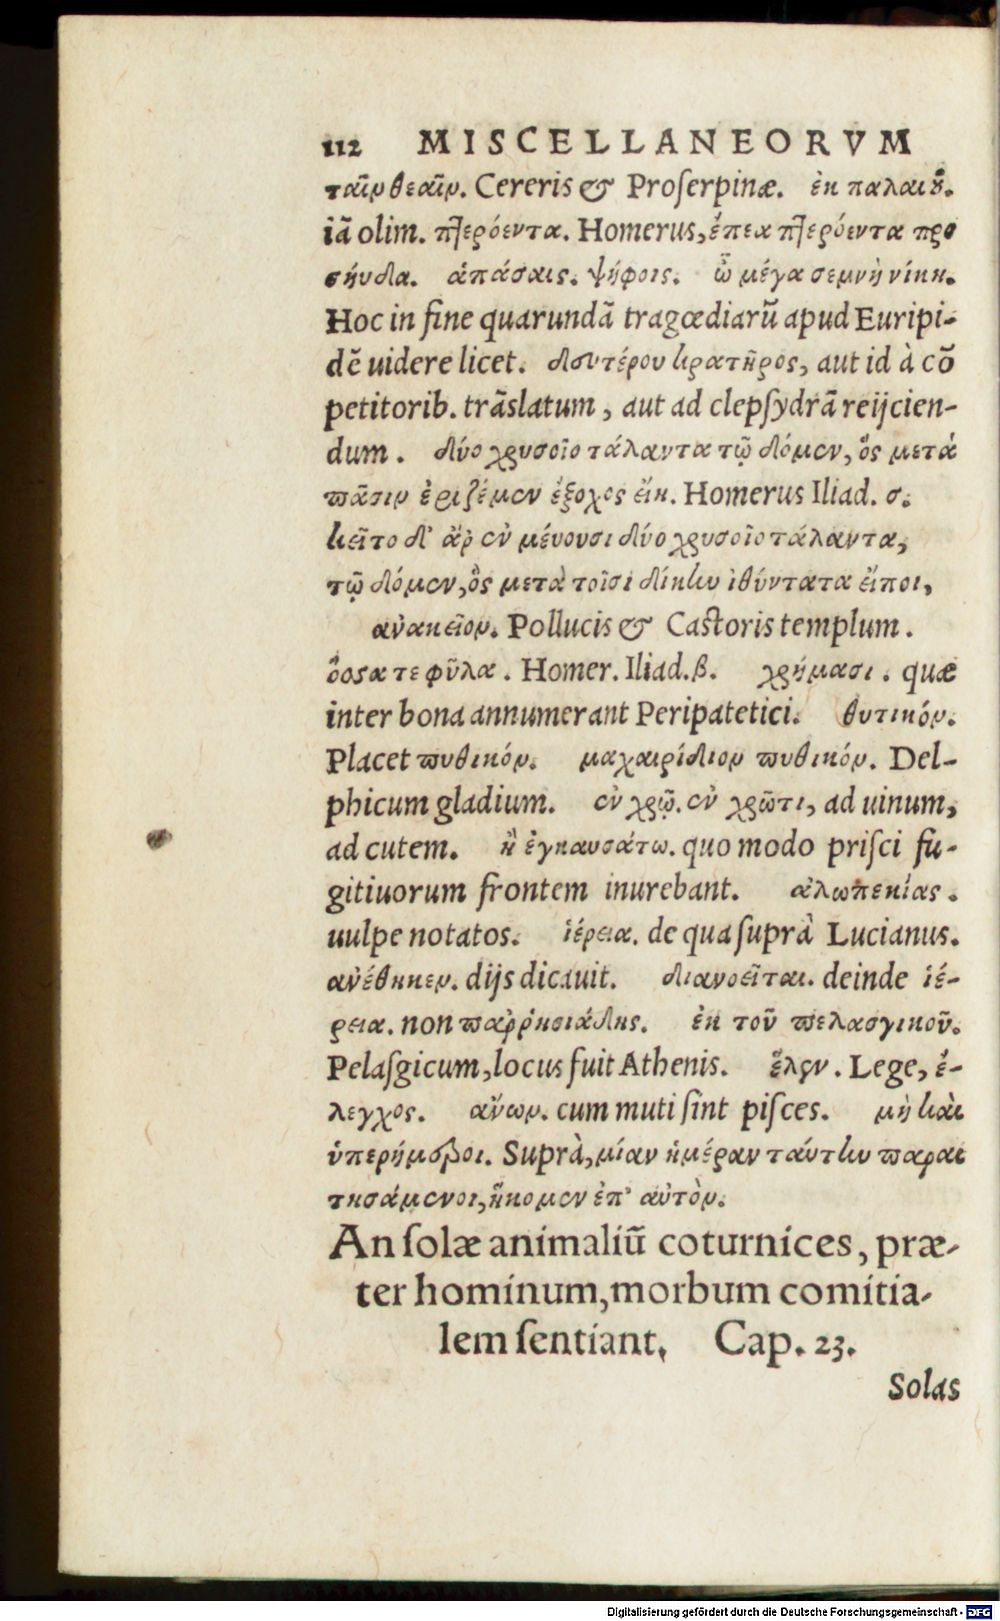 112 MISCELLANEORVM
ταῖν θεαῖν. Cereris & Proſerpinæ. ἐκ παλαιȣ̃.
iã olim. πτερόεντα. Homerus, ἔπεα πτερόεντα προ
σήυδα. ἁπάσαις. ψήφοις. ὦ μέγα σεμνὴ νίκη.
Hoc in fine quarundã tragœdiarũ apud Euripi-
dẽ uidere licet. δευτέρου κρατῆρος, aut id à cõ
petitorib. trãslatum, aut ad clepſydrã reijcien-
dum. δύο χρυσοῖο τάλαντα τῷ δόμεν, ὅς μετὰ
πᾶσιν ἐριζέμεν ἔξοχος εἴη. Homerus Iliad. σ.
κεῖτο δ' ἄρ ἐν μέσουσι δύο χρυσοῖο τάλαντα,
τῷ δόμεν, ὃς μετὰ τοῖσι δίκην ἰθύντατα εἴποι,
ανακεῖον. Pollucis & Caſtoris templum.
ὅοςα τε φῦλα. Homer. Iliad. β. χρήμασι. quæ
inter bona annumerant Peripatetici. θυτικόν.
Placet πυθικόν. μαχαιρίδιον πυθικόν. Del-
phicum gladium. ἐν χρῷ. ἐν χρῶτι, ad uinum,
ad cutem. ἢ ἐγκαυσάτω. quo modo priſci fu-
gitiuorum frontem inurebant. ἀλωπεκίας.
uulpe notatos. ἱέρεια. de qua ſuprà Lucianus.
ανέθηκεν. dijs dicauit. διανοεῖται. deinde ἱέ-
ρεια. non παῤῥησιάδης. ἐκ τοῦ πελασγικοῦ.
Pelaſgicum, locus fuit Athenis. ἕλεν. Lege, ἔ-
λεγχος. ανωρ. cum muti ſint piſces. μὴ καὶ
ὑπερήμεροι. Suprà, μίαν ἡμέραν ταύτην παραι
τησάμενοι, ἥκομεν ἐπ' αὐτὸν.
An ſolæ animaliũ coturnices, præ-
ter hominum, morbum comitia-
lem ſentiant. Cap. 23.
Solas
Digitalisierung gefördert durch die Deutsche Forschungsgemeinschaft - DFG